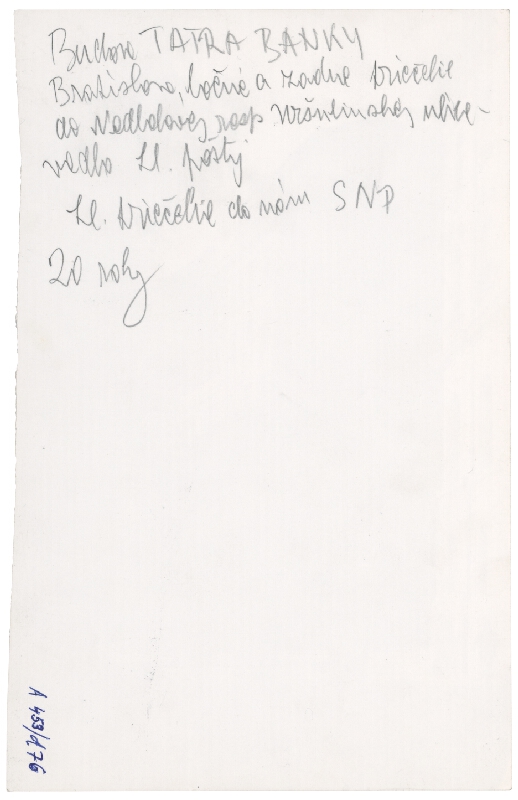 Budova TATRA BANKY
Bratislava, bočné a zadné priečelie
do Nedbalovej resp Uršulínskej ulice -
vedľa Hl. pošty
Hl. priečelie do nám SNP
20 roky
A 453/d76